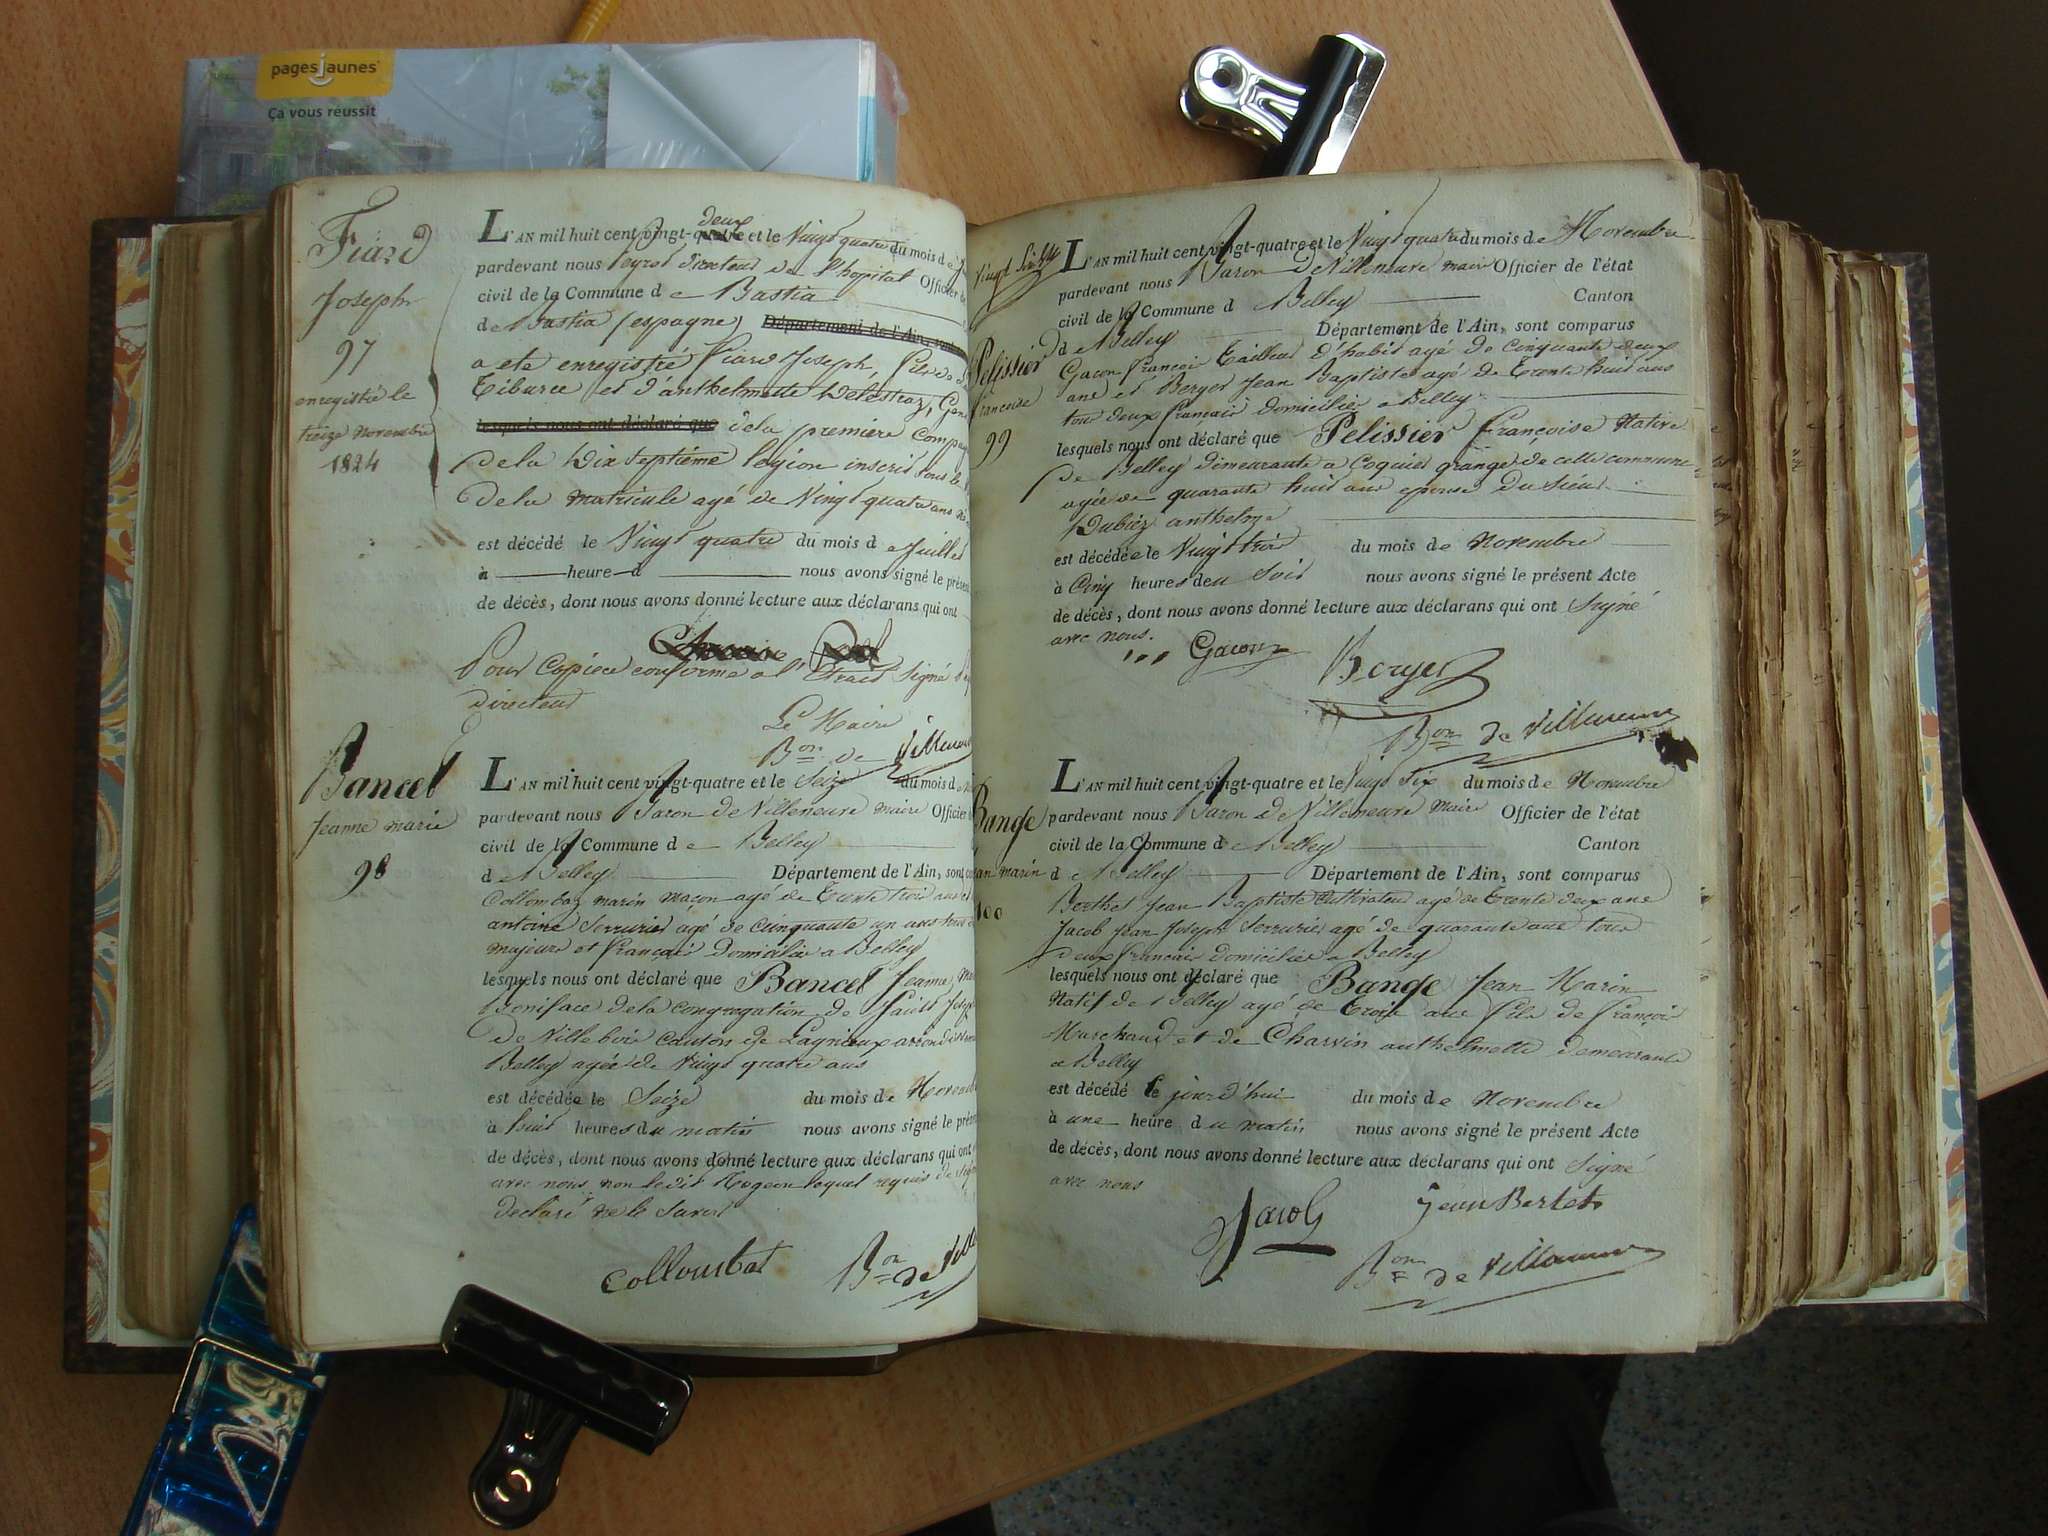 pagesjaunes
Ça vous réussit
Fiard
Joseph
97
enregistré le
treize novembre
1824
deux
L'AN mil huit cent vingt-quatre et le Vingt quatre du mois de
pardevant nous Peyrot directeur de l'hopital Officier
civil de la Commune de Bastia
de Bastia (espagne) Département de l'Ain,
a ete enregistré Fiard Joseph, fils de
Tiburce et d'anthelmette Delestraz,
lesquels nous ont déclaré que de la premiere
de la Dix Septiéme légion inscrit sous le
de la matricule agé de Vingt quatre ans
est décédé le Vingt quatre du mois de Juillet
à heure d nous avons signé le
de décès, dont nous avons donné lecture aux déclarans qui ont
Pour Copie conforme a l'Extrait Signé
directeur
Le Maire
Bon de Villeneuve
Bancel
Jeanne marie
98
L'AN mil huit cent vingt-quatre et le Seize du mois de
pardevant nous Baron de Villeneuve maire Officier
civil de la Commune de Belley
d Belley Département de l'Ain, sont
Collombat marin maçon agé de Trente trois ans et
antoine Serrurier agé de cinquante un ans tous
majeurs et français Domiciliés a Belley
lesquels nous ont déclaré que Bancel Jeanne
boniface de la congregation de Saint
de Villebois Canton de Lagnieux
Belley agée de Vingt quatre ans
est décédée le Seize du mois de Novembre
à huit heures du matin nous avons signé le
de décès, dont nous avons donné lecture aux déclarans qui ont
avec nous non ledit lequel requis de
declaré ne le Savoir
Collombat Bon de
Pelissier
francoise
99
L'AN mil huit cent vingt-quatre et le Vingt quatre du mois de Novembre
pardevant nous Baron de Villeneuve maire Officier de l'état
civil de la Commune d Belley Canton
d Belley Département de l'Ain, sont comparus
Gacon françois Tailleur d'habit agé de cinquante deux
ans et Berger Jean Baptiste agé de Trente huit ans
tous deux français domiciliés a Belley
lesquels nous ont déclaré que Pelissier françoise Native
de Belley demeurante a Coquier grange de cette commune
agée de quarante huit ans epouse du Sieur
Dubiez anthelme
est décédée le Vingt trois du mois de Novembre
à Cinq heures du Soir nous avons signé le présent Acte
de décès, dont nous avons donné lecture aux déclarans qui ont Signé
avec nous.
Gacon Berger
Bon de Villeneuve
Bange
Jean marin
100
L'AN mil huit cent vingt-quatre et le Vingt Six du mois de Novembre
pardevant nous Baron de Villeneuve maire Officier de l'état
civil de la Commune de Belley Canton
d Belley Département de l'Ain, sont comparus
Berthet Jean Baptiste Cultivateur agé de Trente deux ans
Jacob Jean Joseph Serrurier agé de quarante ans tous
deux francais domiciliés a Belley
lesquels nous ont déclaré que Bange Jean Marin
Natif de Belley agé de Trois ans fils de françois
Marchand et de Charvin anthelmette demeurante
a Belley
est décédé le jourd'hui du mois de Novembre
à une heure du matin nous avons signé le présent Acte
de décès, dont nous avons donné lecture aux déclarans qui ont Signé
avec nous
Jacob Jean Bertet
Bon de Villeneuve